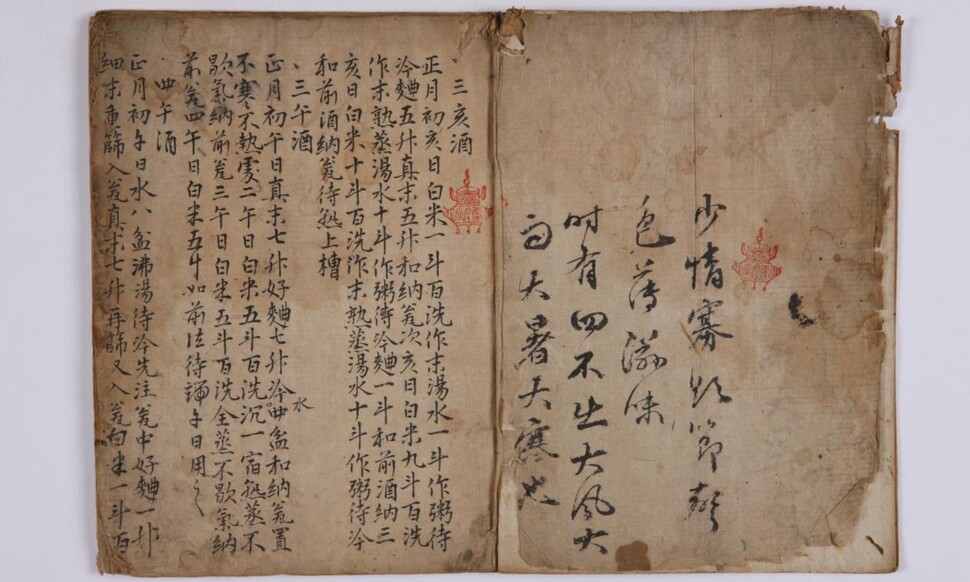 少情寡慾節聲
色薄滋味
时有四不出大風大
雨大暑大寒也
、三亥酒
正月初亥日白米一斗百洗作末湯水一斗作粥待
冷麯五升真末五升和納瓮次亥日白米九斗百洗
作末熟蒸湯水十斗作粥待冷麯一斗和前酒納三
亥日白米十斗百洗作末熟蒸湯水十斗作粥待冷
和前酒納瓮待熟上槽
、三午酒
正月初午日真末七升好麯七升冷水四盆和納瓮置
不寒不熱處二午日白米五斗百洗沉一宿熟蒸不
歇氣納前瓮三午日白米五斗百洗全蒸不歇氣納
前瓮四午日白米五斗如前法待端午日用之
、四午酒
正月初午日水八盆沸湯待冷先注瓮中好麯一升
細末重篩入瓮真末七升再篩又入瓮白米一斗百